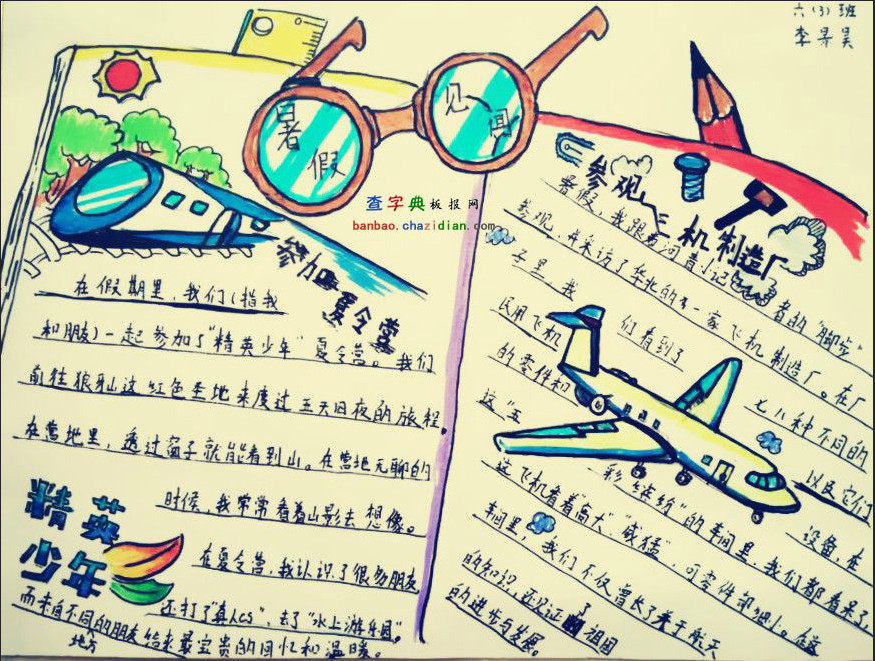 六(3)班
李景昊
暑假
见闻
查字典板报网
banbao.chazidian.com
参加夏令营
在假期里，我们(指我
和朋友)一起参加了"精英少年"夏令营。我们
前往狼牙山这红色圣地来度过五天四夜的旅程。
在营地里，透过窗子就能看到山。在营地无聊的
时候，我常常看着山影去想像。
在夏令营，我认识了很多朋友
还打了"真人CS"，去了"水上游乐园"。
而来自不同的朋友给来最宝贵的回忆和温暖。
地方
精英
少年
参观
飞机制造厂
暑假，我跟着河青小记者的"脚步"
参观，并采访了华北的一家飞机制造厂。在厂
子里，我们看到了七八种不同的
民用飞机
的零件和以及它们
设备，在
这"五彩缤纷"的车间里，我们都看呆了，
这飞机看着"高大"、"威猛"，可零件却细小。在这
车间里，我们不仅增长了关于航天
的知识，还见证了祖国
的进步与发展。